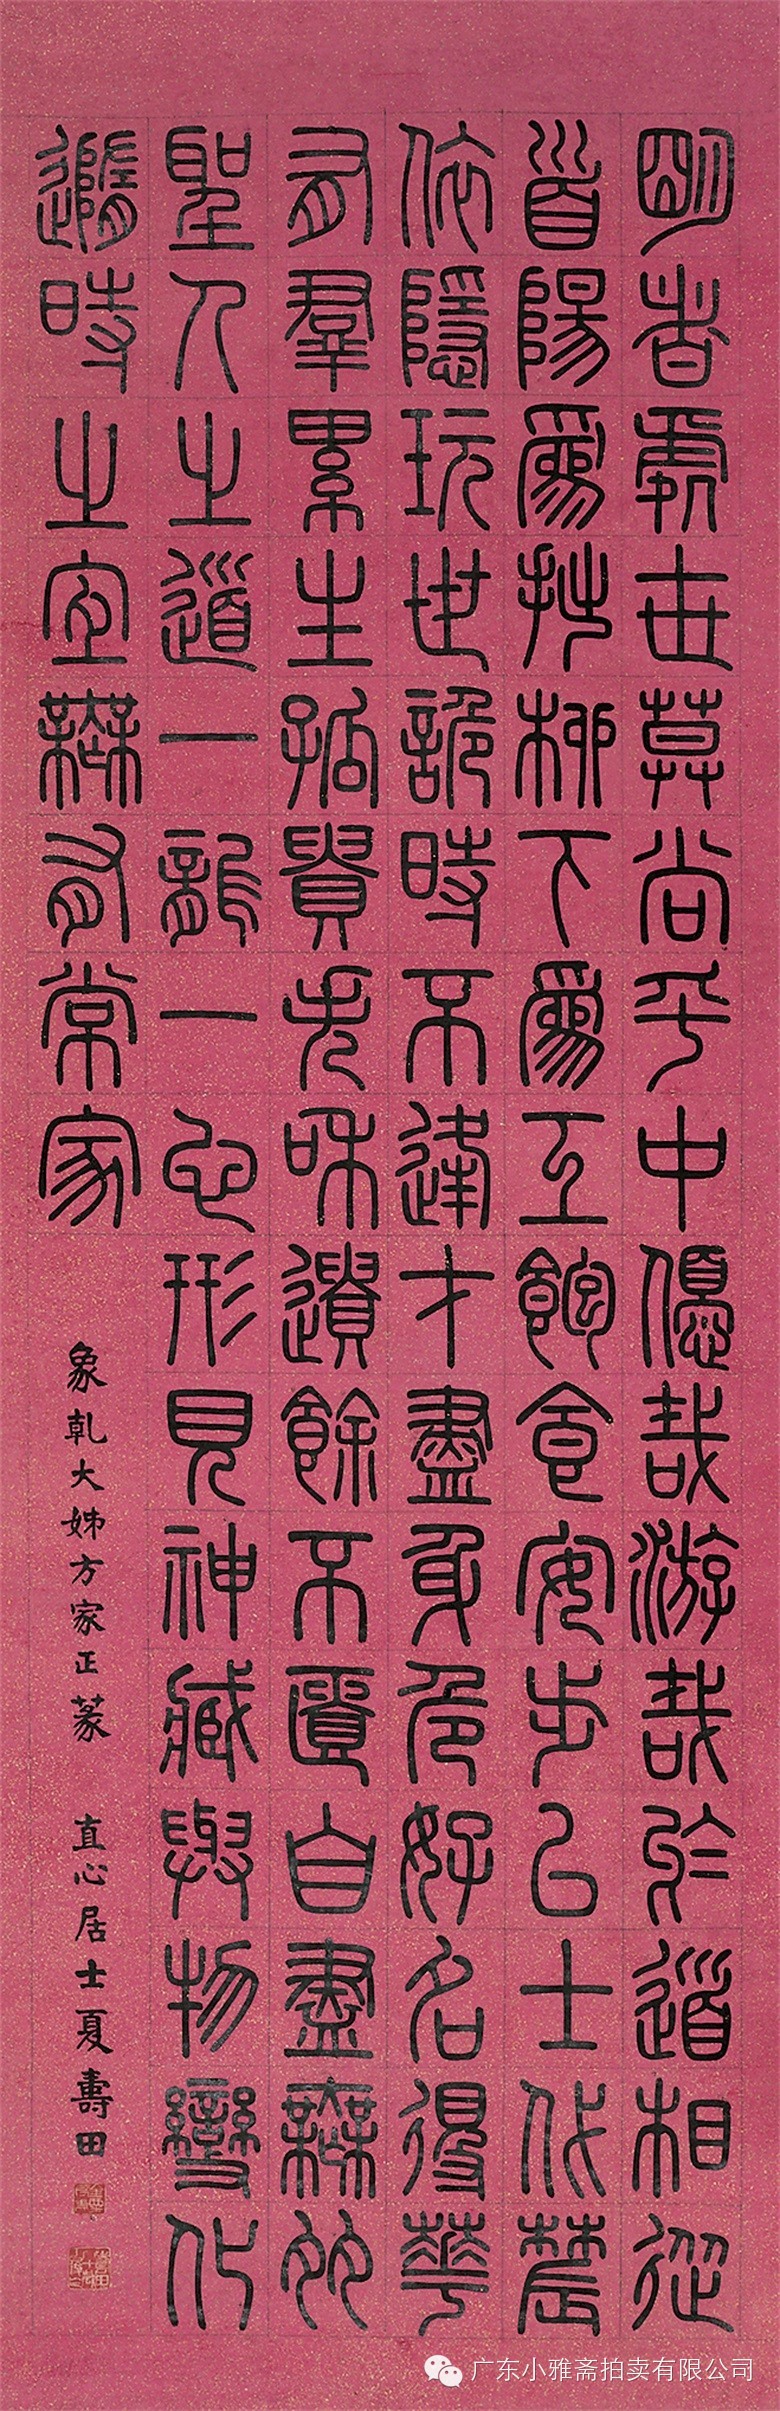 明者處世莫尚乎中優哉游哉於道相從
首陽爲拙柳下爲工飽食安步以士代農
依隱玩世詭時不逢才盡身危好名得華
有羣累生孤貴失和遺餘不匱自盡無多
聖人之道一龍一它形見神藏與物變化
隨時之宜無有常家
象乾大姊方家正篆 直心居士夏壽田
广东小雅斋拍卖有限公司